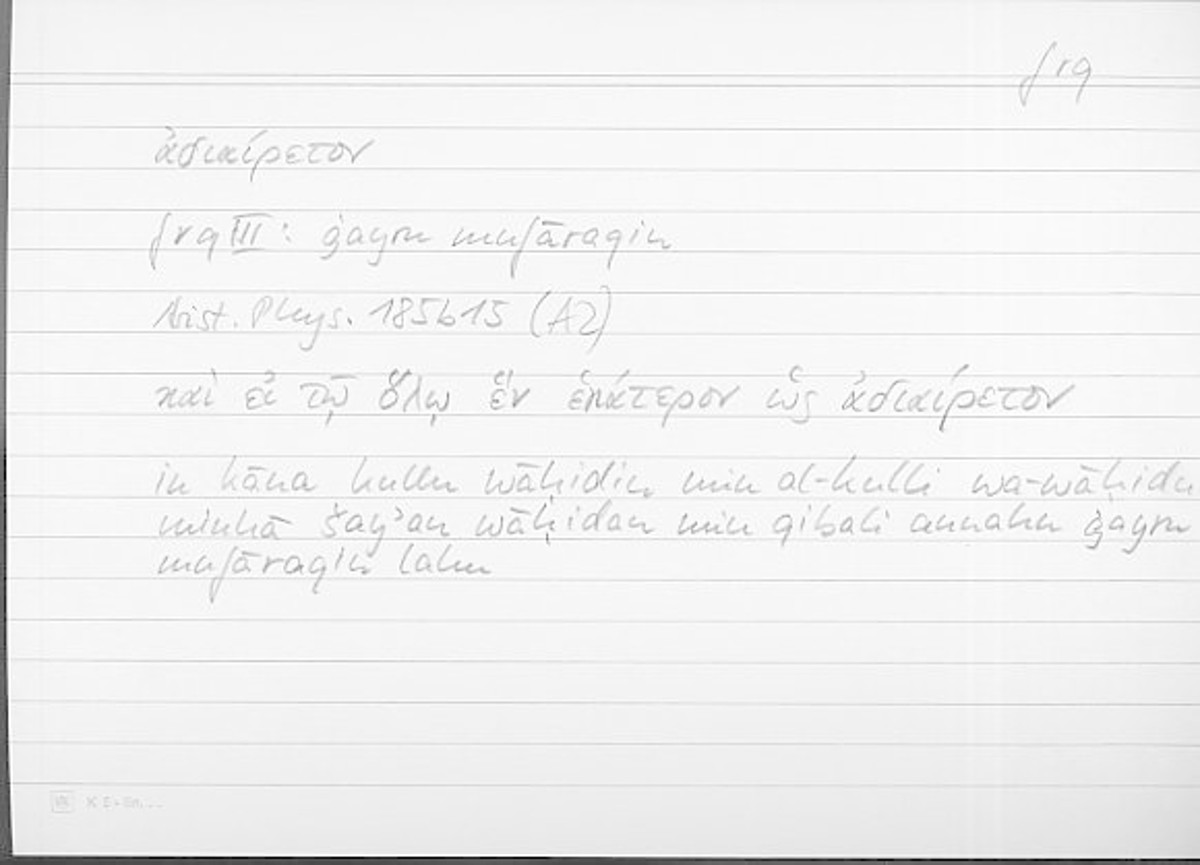 frq
ἀδιαίρετον
frq III: ġayru mufāraqin
Arist. Phys. 185b15 (A2)
καὶ εἰ τῷ ὅλῳ ἓν ἑκάτερον ὡς ἀδιαίρετον
in kāna kullu wāḥidin min al-kulli wa-wāḥidu
minhā šay'an wāḥidan min qibali annahu ġayru
mufāraqin lahu